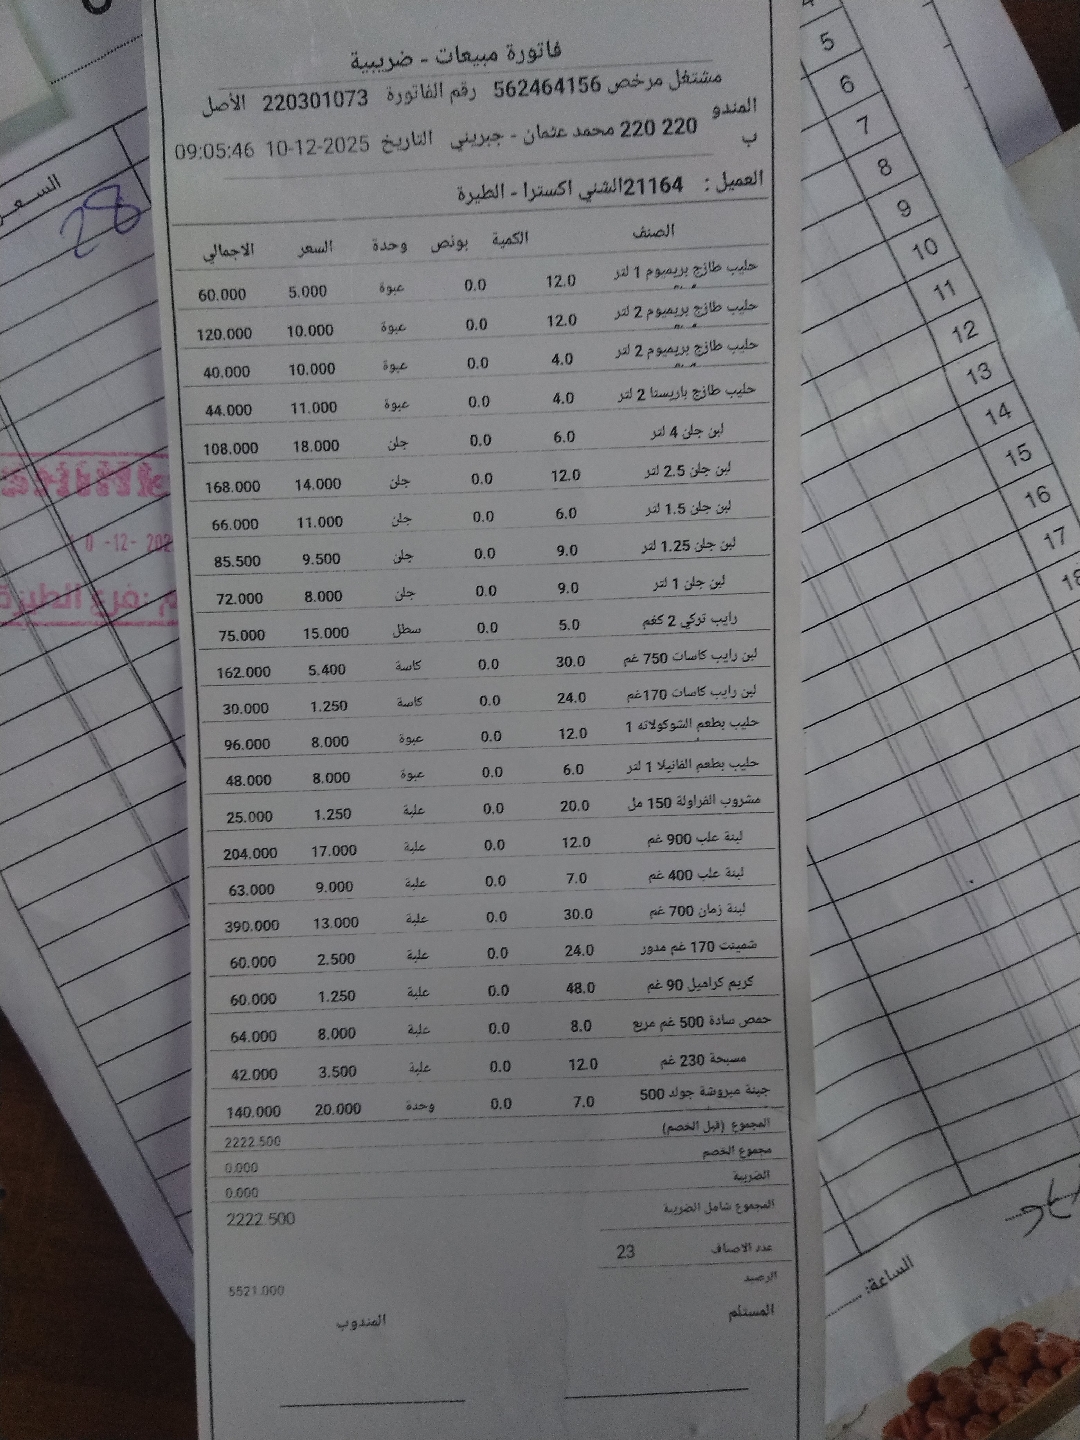 فاتورة مبيعات - ضريبية
مشتغل مرخص 562464156 رقم الفاتورة 220301073 الأصل
المندوب 220 220 محمد عثمان - جبريني التاريخ 10-12-2025 09:05:46
العميل : 21164الشني اكسترا - الطيرة
الصنف الكمية بونص وحدة السعر الاجمالي
حليب طازج بريميوم 1 لتر 12.0 0.0 عبوة 5.000 60.000
حليب طازج بريميوم 2 لتر 12.0 0.0 عبوة 10.000 120.000
حليب طازج بريميوم 2 لتر 4.0 0.0 عبوة 10.000 40.000
حليب طازج باريستا 2 لتر 4.0 0.0 عبوة 11.000 44.000
لبن جلن 4 لتر 6.0 0.0 جلن 18.000 108.000
لبن جلن 2.5 لتر 12.0 0.0 جلن 14.000 168.000
لبن جلن 1.5 لتر 6.0 0.0 جلن 11.000 66.000
لبن جلن 1.25 لتر 9.0 0.0 جلن 9.500 85.500
لبن جلن 1 لتر 9.0 0.0 جلن 8.000 72.000
رايب تركي 2 كغم 5.0 0.0 سطل 15.000 75.000
لبن رايب كاسات 750 غم 30.0 0.0 كاسة 5.400 162.000
لبن رايب كاسات 170غم 24.0 0.0 كاسة 1.250 30.000
حليب بطعم الشوكولاته 1 12.0 0.0 عبوة 8.000 96.000
حليب بطعم الفانيلا 1 لتر 6.0 0.0 عبوة 8.000 48.000
مشروب الفراولة 150 مل 20.0 0.0 علبة 1.250 25.000
لبنة علب 900 غم 12.0 0.0 علبة 17.000 204.000
لبنة علب 400 غم 7.0 0.0 علبة 9.000 63.000
لبنة زمان 700 غم 30.0 0.0 علبة 13.000 390.000
شمينت 170 غم مدور 24.0 0.0 علبة 2.500 60.000
كريم كراميل 90 غم 48.0 0.0 علبة 1.250 60.000
حمص سادة 500 غم مربع 8.0 0.0 علبة 8.000 64.000
مسبحة 230 غم 12.0 0.0 علبة 3.500 42.000
جبنة مبروشة جولد 500 7.0 0.0 وحدة 20.000 140.000
المجموع (قبل الخصم) 2222.500
مجموع الخصم 0.000
الضريبة 0.000
المجموع شامل الضريبة 2222.500
عدد الاصناف 23
الرصيد 5521.000
المستلم المندوب
السعر
28
فرع الطيرة
5
6
7
8
9
10
11
12
13
14
15
16
17
18
الساعة: